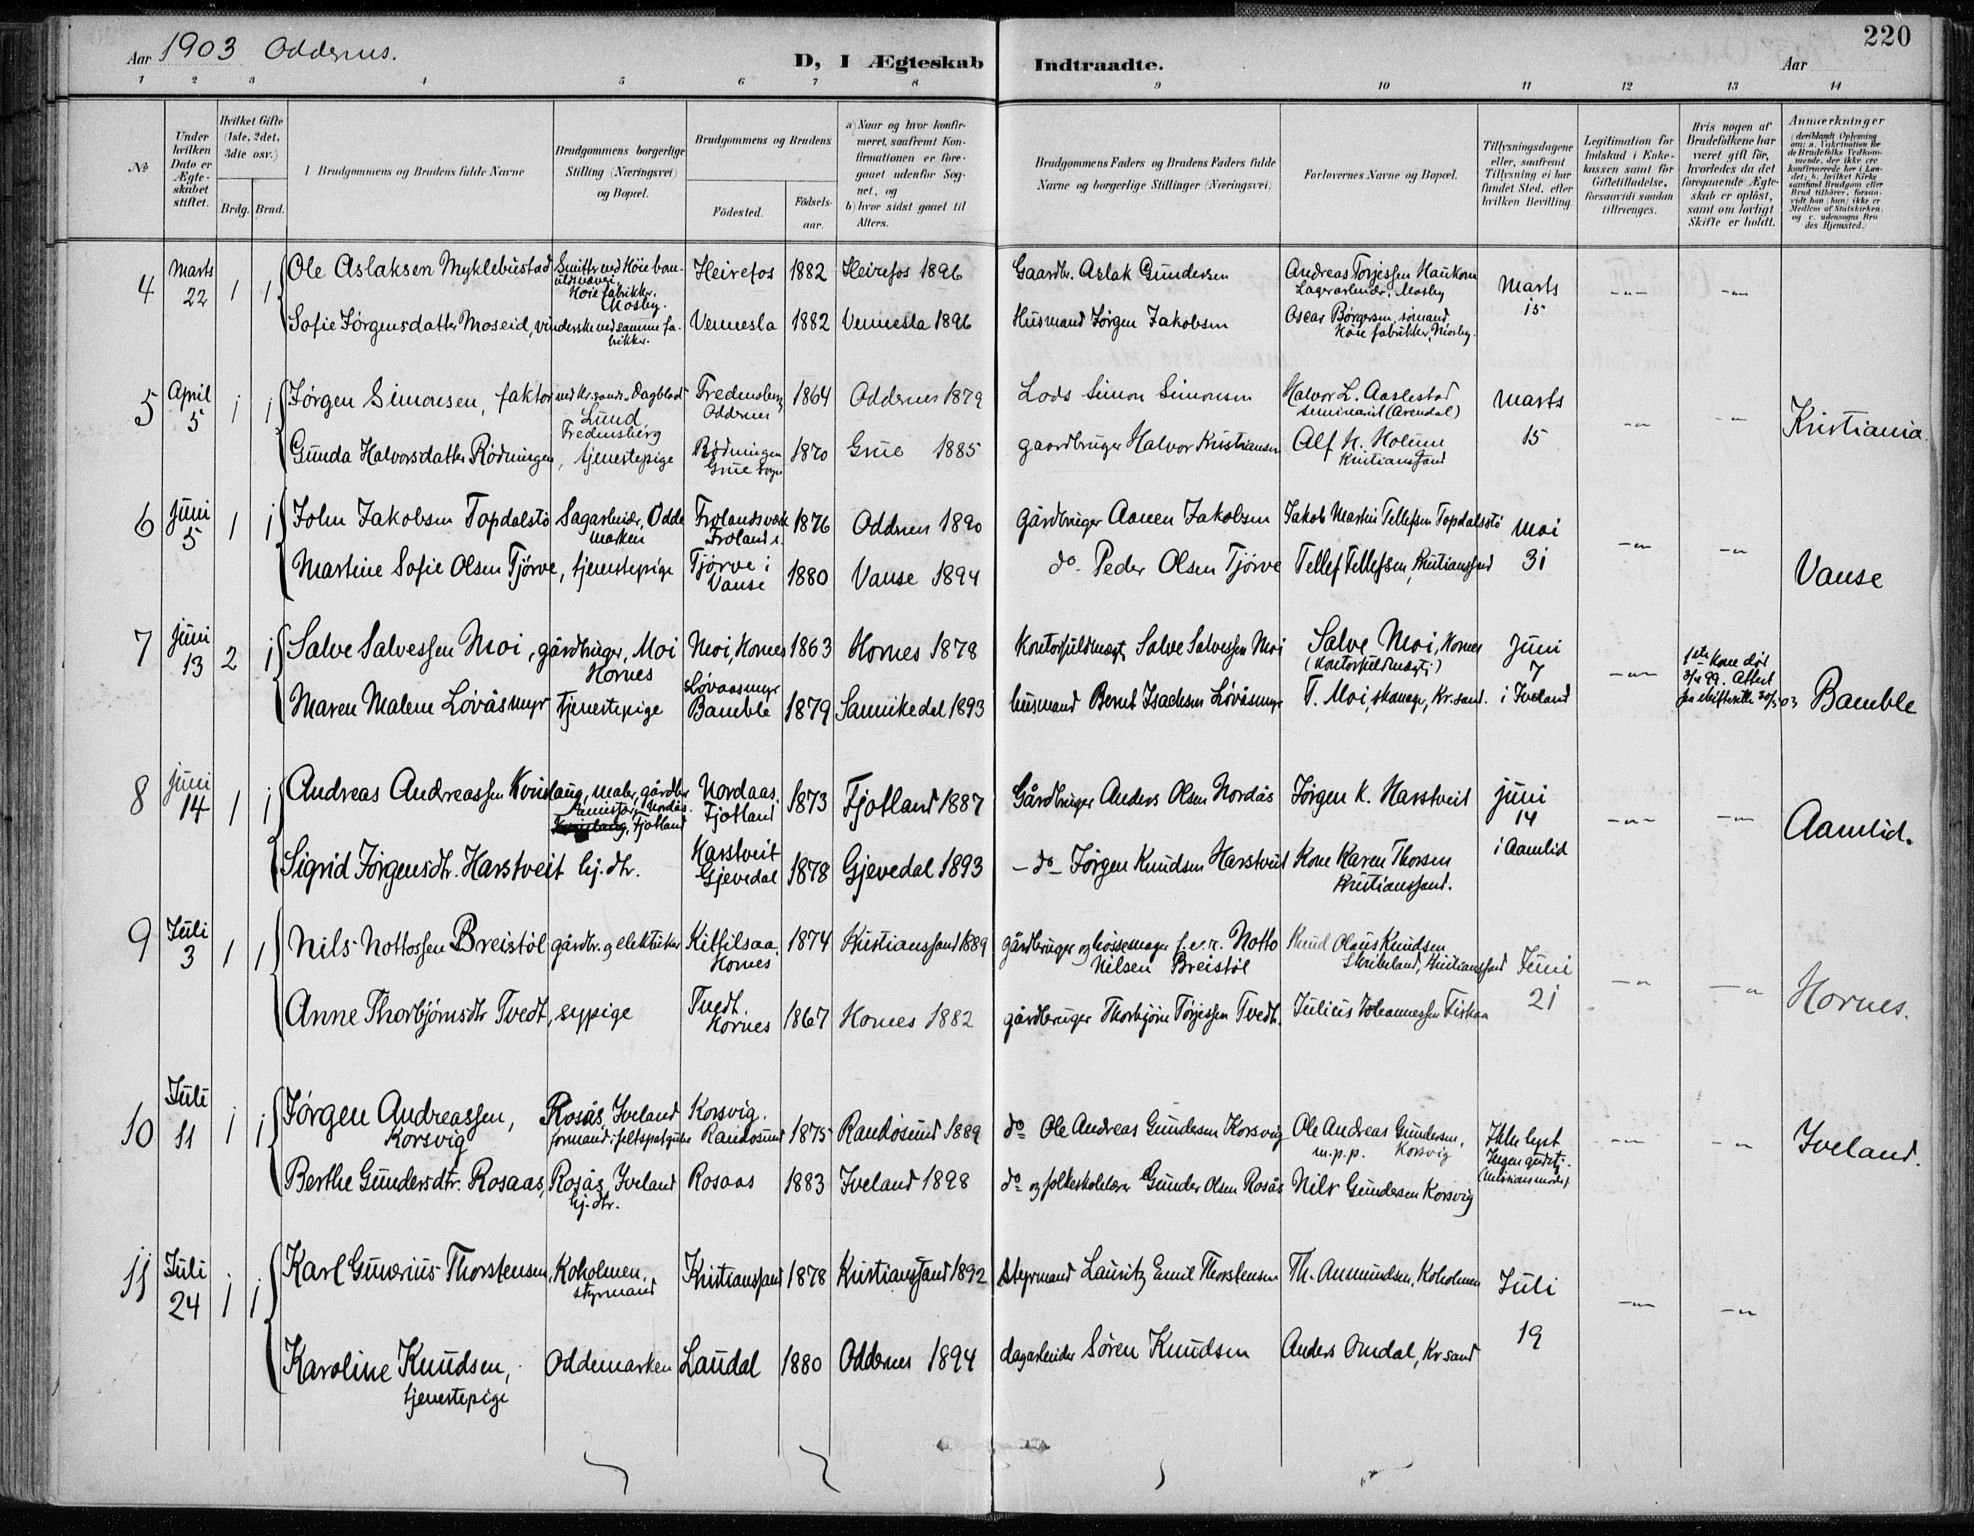 220
Aar 1903 Oddernes.
D, I Ægteskab Indtraadte.
Aar
1 2 3 4 5 6 7 8 9 10 11 12 13 14
No
Under hvilken Dato er Ægteskabet stiftet.
Hvilket Gifte (1ste, 2det, 3die osv.)
Brdg. Brud.
I Brudgommens og Brudens fulde Navne
Brudgommens borgerlige Stilling (Næringsvei) og Bopæl.
Brudgommens og Brudens
Födested.
Födselsaar.
a) Naar og hvor konfirmeret, saafremt Konfirmationen er foregaaet udenfor Sognet, og
b) hvor sidst gaaet til Alters.
Brudgommens Faders og Brudens Faders fulde Navne og borgerlige Stillinger (Næringsvei)
Forlovernes Navne og Bopæl.
Tillysningsdagene eller, saafremt Tillysning ei har fundet Sted, efter hvilken Bevilling
Legitimation for Indskud i Enkekassen samt for Giftetilladelse, forsaavidt saadan tiltrænges.
Hvis nogen af Brudefolkene har været gift för, hvorledes da det foregaaende Ægteskab er oplöst, samt om lovligt Skifte er holdt.
Anmærkninger
4 Marts 22 1 1 Ole Aslaksen Myklebustad Heirefos 1882 Heirefos 1896 Gaardbr. Aslak Gundersen Andreas Torjessen Haukom Lagerarbeider, Mosby Marts 15
Høie fabrikker. Mosby.
Sofie Jørgensdatter Moseid, vinderske ved samme fabrikker. Vennesla 1882 Vennesla 1896 Husmand Jørgen Jakobsen Oscar Børgersen, sømand Høie fabrikker, Mosby.
5 April 5 1 1 Jørgen Simonsen, faktor ved Kr.sands Dagblad Lund Fredensborg Fredensborg Oddernes 1864 Oddernes 1879 Lods Simon Simonsen Halvor L. Aaslestad seminarist (Arendal) Marts 15
Gunda Halvorsdatter Rödningen, tjenestepige Rödningen Grue sogn 1870 Grue 1885 gaardbruger Halvor Kristiansen Alf H. Holum Kristianssand Kristiania.
6 Juni 5 1 1 John Jakobsen Topdalstö Sagarbeider, Oddemarken Frolandsværk Froland s. 1876 Oddernes 1890 gårdbruger Aanen Jakobsen Jakob Martin Tellefsen Topdalsstö Mai 31
Martine Sofie Olsen Tjörve, tjenestepige Tjörve i Vanse 1880 Vanse 1894 do. Peder Olsen Tjörve Tellef Tellefsen, Kristianssand Vanse
7 Juni 13 2 1 Salve Salvessen Moi, gårdbruger, Moi Hornes Moi, Hornes 1863 Hornes 1878 Kontorfuldmægt. Salve Salvessen Moi Salve Moi, Hornes (Kontorfuldmægt.) Juni 7 i Iveland
1ste Kone död
Maren Malene Lövåsmyr tjenestepige Lövaasmyr Bamble 1879 Sannikedal 1893 husmand Bernt Isachsen Lövåsmyr T. Moi, skomager, Kr.sand. Bamble
8 Juni 14 1 1 Andreas Andreassen Kvinlaug, maler, gårdbr. Nordås Fjotland Nordaas Fjotland 1873 Fjotland 1887 Gårdbruger Anders Olsen Nordås Jørgen K. Harstveit Juni 14 i Aamlid
Sigrid Jørgensdtr. Harstveit hj. dtr. Harstveit Gjevedal 1878 Gjevedal 1893 - do - Jørgen Knudsen Harstveit Kone Karen Thorsen Kristianssand. Aamlid.
9 Juli 3 1 1 Nils Nottossen Breistöl gårdbr. og elektriker Kittilsaa Hornes 1874 Kristianssand 1889 gårdbruger og Notto Nilsen Breistöl Knud Olaus Knudsen Skibeland, Kristianssand Juni 21
Anne Thorbjörnsdtr Tvedt, sypige Tvedt. Hornes 1867 Hornes 1882 gårdbruger Thorbjörn Torjessen Tvedt. Julius Johannessen Fiskaa Hornes.
10 Juli 11 1 1 Jörgen Andreassen, Korsvig Rosås, Iveland formand i feltspatgrube Korsvig. Randösund 1875 Randösund 1889 do Ole Andreas Gundersen Korsvig Ole Andreas Gundersen, m.p.p. Korsvig Ikke lyst
Berthe Gundersdtr. Rosaas, Rosås, Iveland hj. dtr. Rosaas 1883 Iveland 1898 do og folkeskolelærer Gunder Olsen Rosås Nils Gundersen Korsvig Iveland.
11 Juli 24 1 1 Karl Gunerius Thorstensen, Koholmen, styrmand Kristianssand 1878 Kristianssand 1892 Styrmand Lauritz Emil Thorstensen Th. Anmundsen, Koholmen Juli 19
Karoline Knudsen, tjenestepige Oddemarken Laudal 1880 Oddernes 1894 dagarbeider Sören Knudsen Anders Omdal, Kr.sand